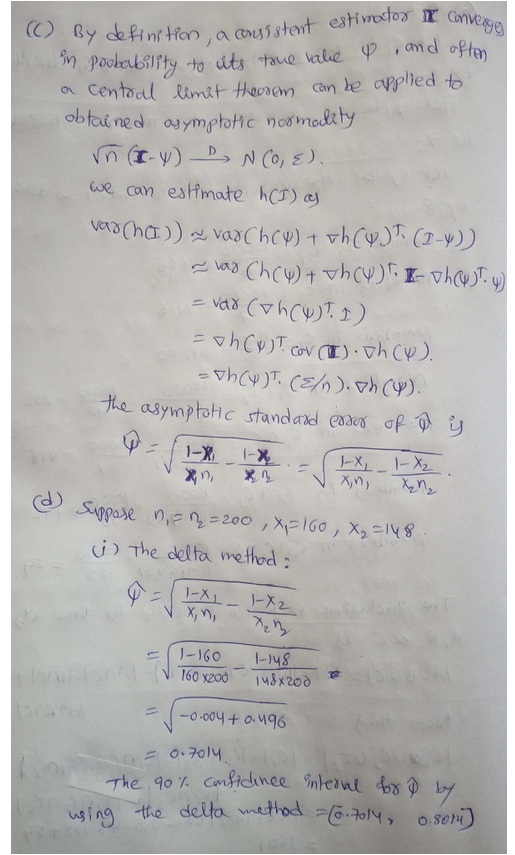 (c) By definition, a consistent estimator I converges
in probability to its true value ψ, and often
a central limit theorem can be applied to
obtained asymptotic normality
√n (I-ψ) →D N(0, Σ).
we can estimate h(I) as
var(h(I)) ≈ var(h(ψ) + ∇h(ψ)ᵀ. (I-ψ))
≈ var (h(ψ) + ∇h(ψ)ᵀ. I - ∇h(ψ)ᵀ.ψ)
= var (∇h(ψ)ᵀ. I)
= ∇h(ψ)ᵀ. cov(I). ∇h(ψ).
= ∇h(ψ)ᵀ. (Σ/n). ∇h(ψ).
the asymptotic standard error of ψ̂ is
ψ̂ = √(1-X₁/X₁n₁ - 1-X₂/X₂n₂) = √(1-X₁/X₁n₁ - 1-X₂/X₂n₂).
(d) Suppose n₁ = n₂ = 200, X₁=160, X₂=148.
(i) The delta method:
ψ̂ = √(1-X₁/X₁n₁ - 1-X₂/X₂n₂)
= √(1-160/160x200 - 1-148/148x200)
= √(-0.004 + 0.496)
= 0.7014
The 90% confidence interval for ψ̂ by
using the delta method = [0.7014, 0.8014]